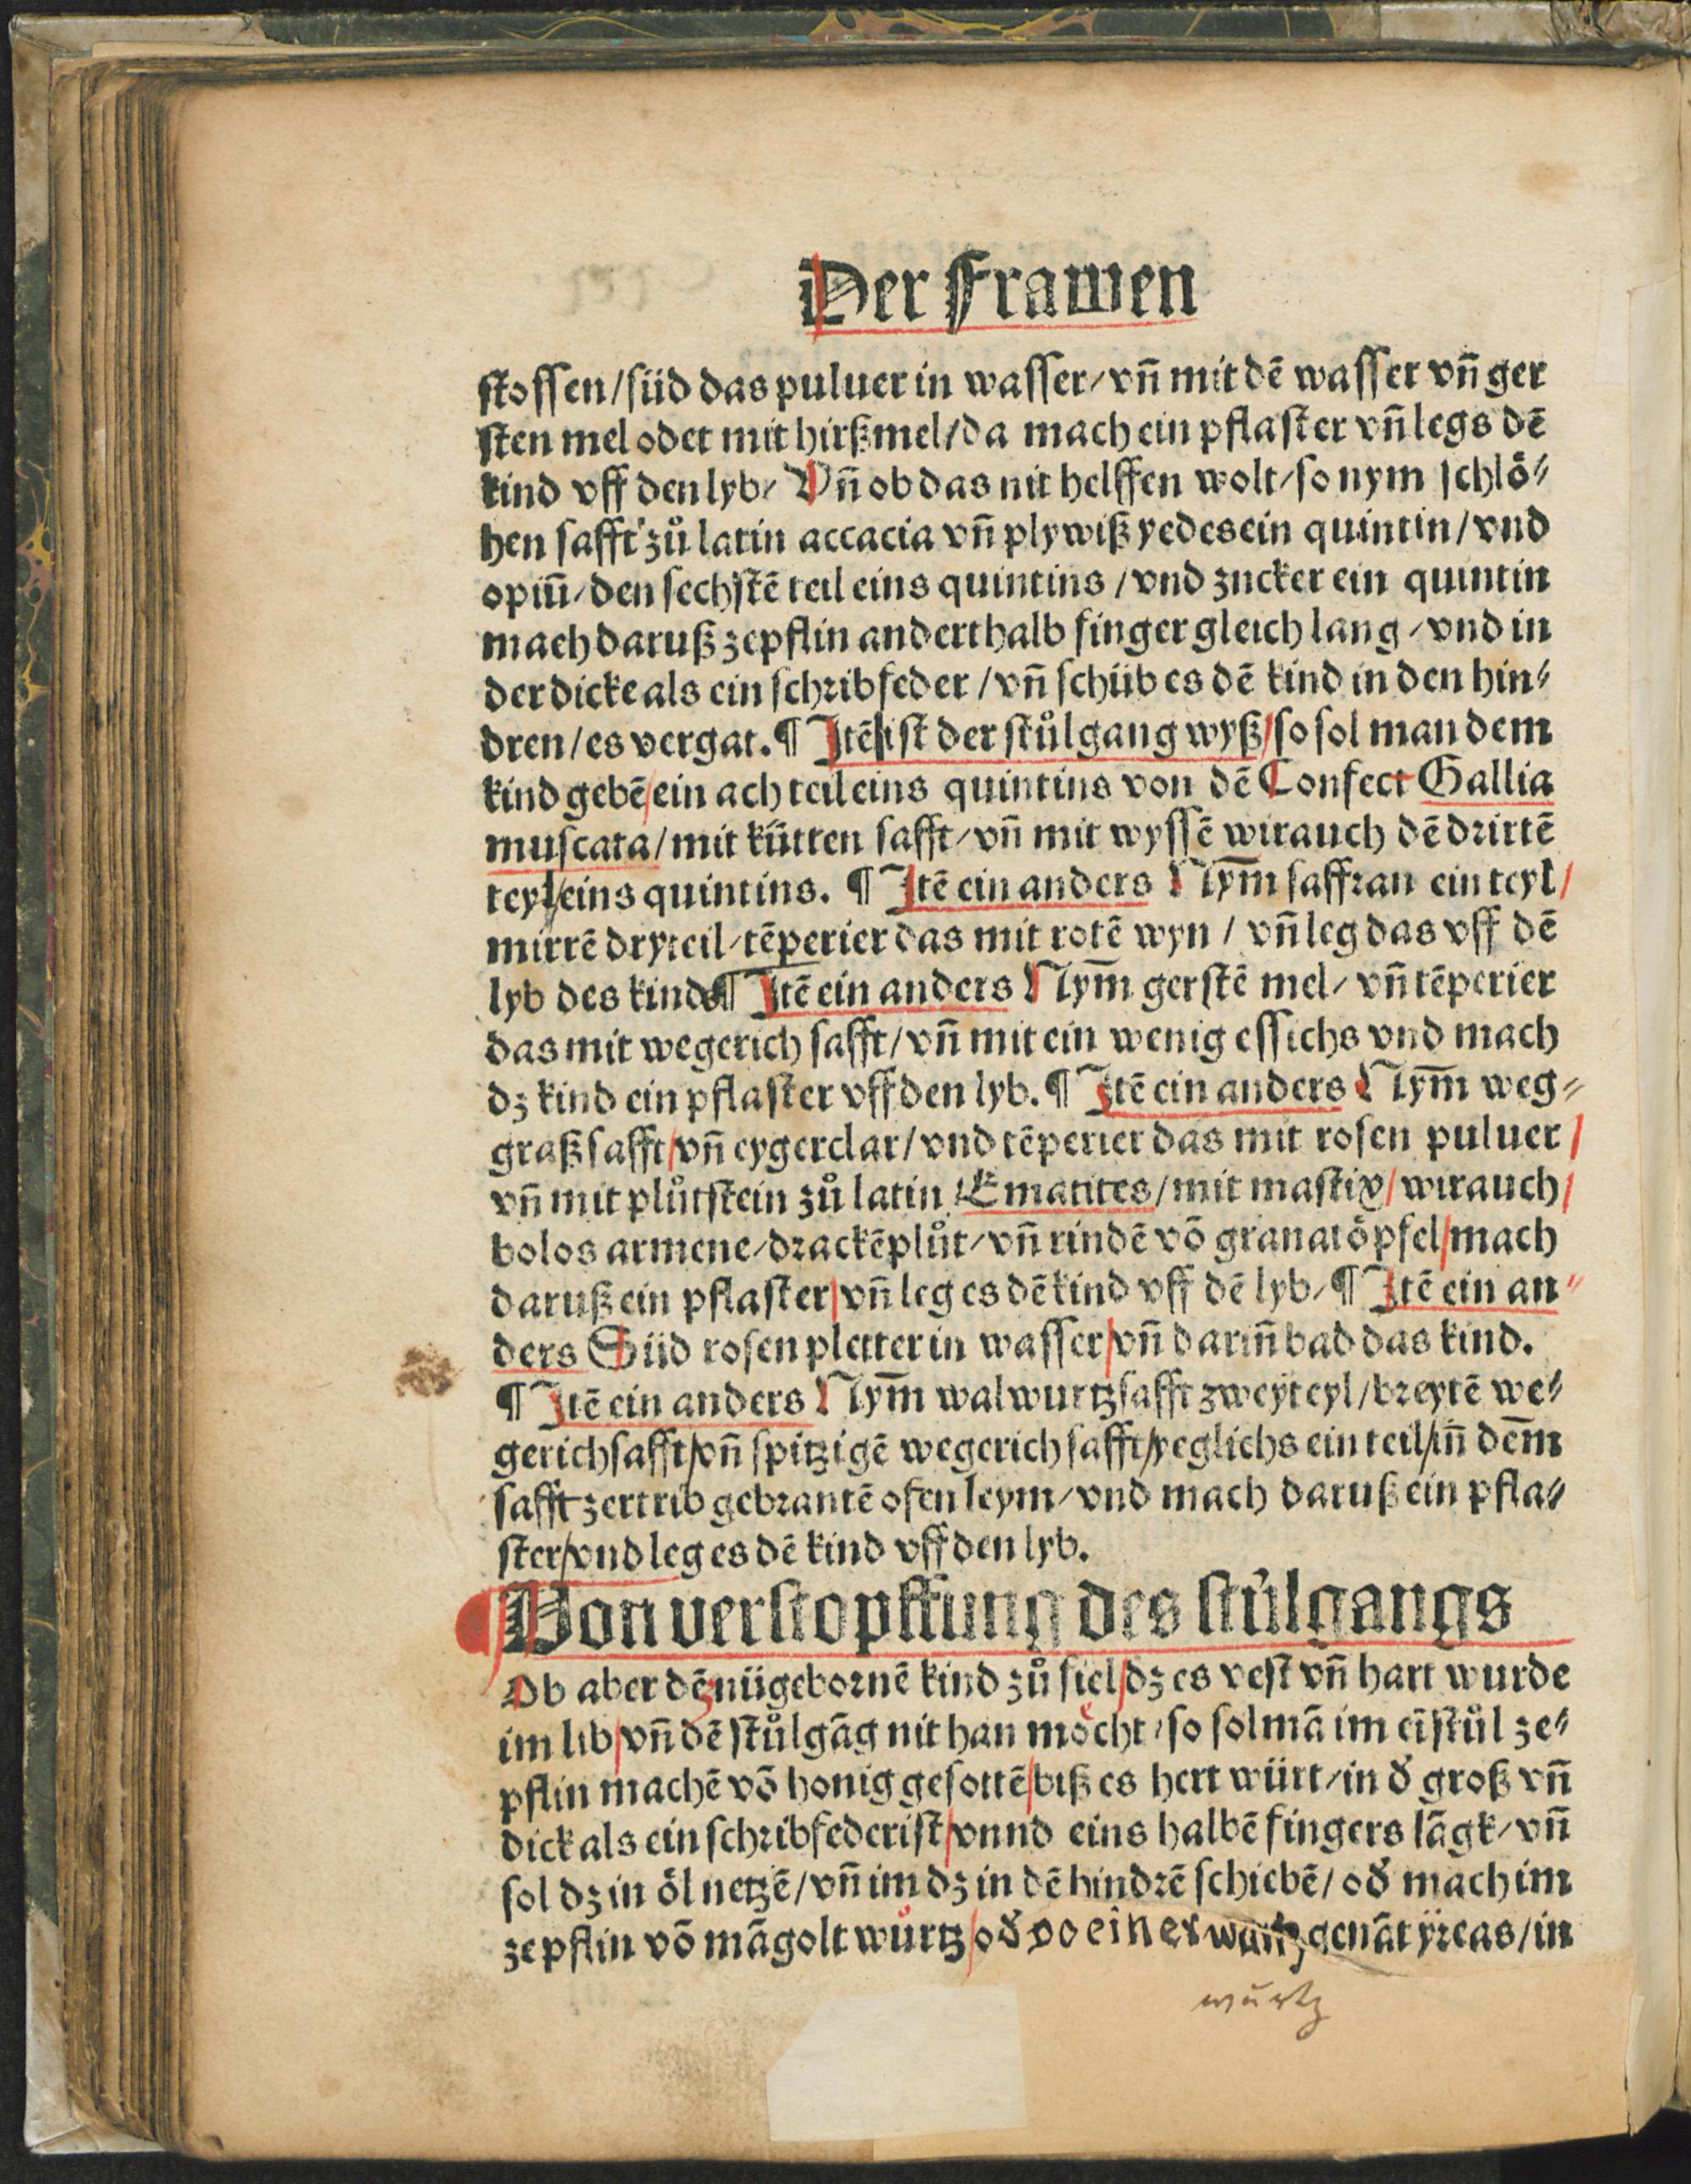 Der Frawen
stossen/süd das puluer in wasser/vñ mit dē wasser vñ ger
sten mel odet mit hirßmel/da mach ein pflaster vñ legs dē
kind vff den lyb/ Vñ ob das nit helffen wolt/so nym schlö⸗
hen safft zů latin accacia vñ plywiß yedes ein quintin/vnd
opiū/den sechstē teil eins quintins/vnd zucker ein quintin
mach daruß zepflin anderthalb finger gleich lang/vnd in
der dicke als ein schribfeder/vñ schüb es dē kind in den hin⸗
dren/es vergat. ¶ Itē ist der stůlgang wyß/so sol man dem
kind gebē/ein ach teil eins quintins von dē Confect Gallia
muscata/mit kütten safft/vñ mit wyssē wirauch dē drittē
teyl/eins quintins. ¶ Itē ein anders Nym̄ saffran ein teyl/
mirrē dryteil/tēperier das mit rotē wyn/vñ leg das vff dē
lyb des kinds ¶ Itē ein anders Nym̄ gerstē mel/vñ tēperier
das mit wegerich safft/vñ mit ein wenig essichs vnd mach
dz kind ein pflaster vff den lyb. ¶ Itē ein anders Nym̄ weg⸗
graß safft/vñ eygerclar/vnd tēperier das mit rosen puluer/
vñ mit plůtstein zů latin Ematites/mit mastix/wirauch/
bolos armene/drackēplůt/vñ rindē vō granatöpfel/mach
daruß ein pflaster/vñ leg es dē kind vff dē lyb/ ¶ Itē ein an⸗
ders Süd rosen pletter in wasser/vñ darin̄ bad das kind.
¶ Itē ein anders Nym̄ walwurtzsafft zwey teyl/breytē we⸗
gerichsafft/vñ spitzigē wegerich safft/yeglichs ein teil/in̄ dem̄
safft zertrib gebrantē ofen leym/vnd mach daruß ein pfla⸗
ster/vnd leg es dē kind vff den lyb.
Von verstopffung des stůlgangs
Ob aber dē nügebornē kind zů fiel/dz es vest vñ hart wurde
im lib/vñ dē stůlgāg nit han möcht/so sol mā im ei stůl ze⸗
pflin machē vō honig gesottē/biß es hert würt/in ď groß vñ
dick als ein schribfeder ist/vnnd eins halbē fingers lāgk/vñ
sol dz in öl netzē/vñ im dz in dē hindrē schiebē/oď mach im
zepflin vō māgolt wůrtz/oď vo einer wurtz genāt yreas/in
wůrtz